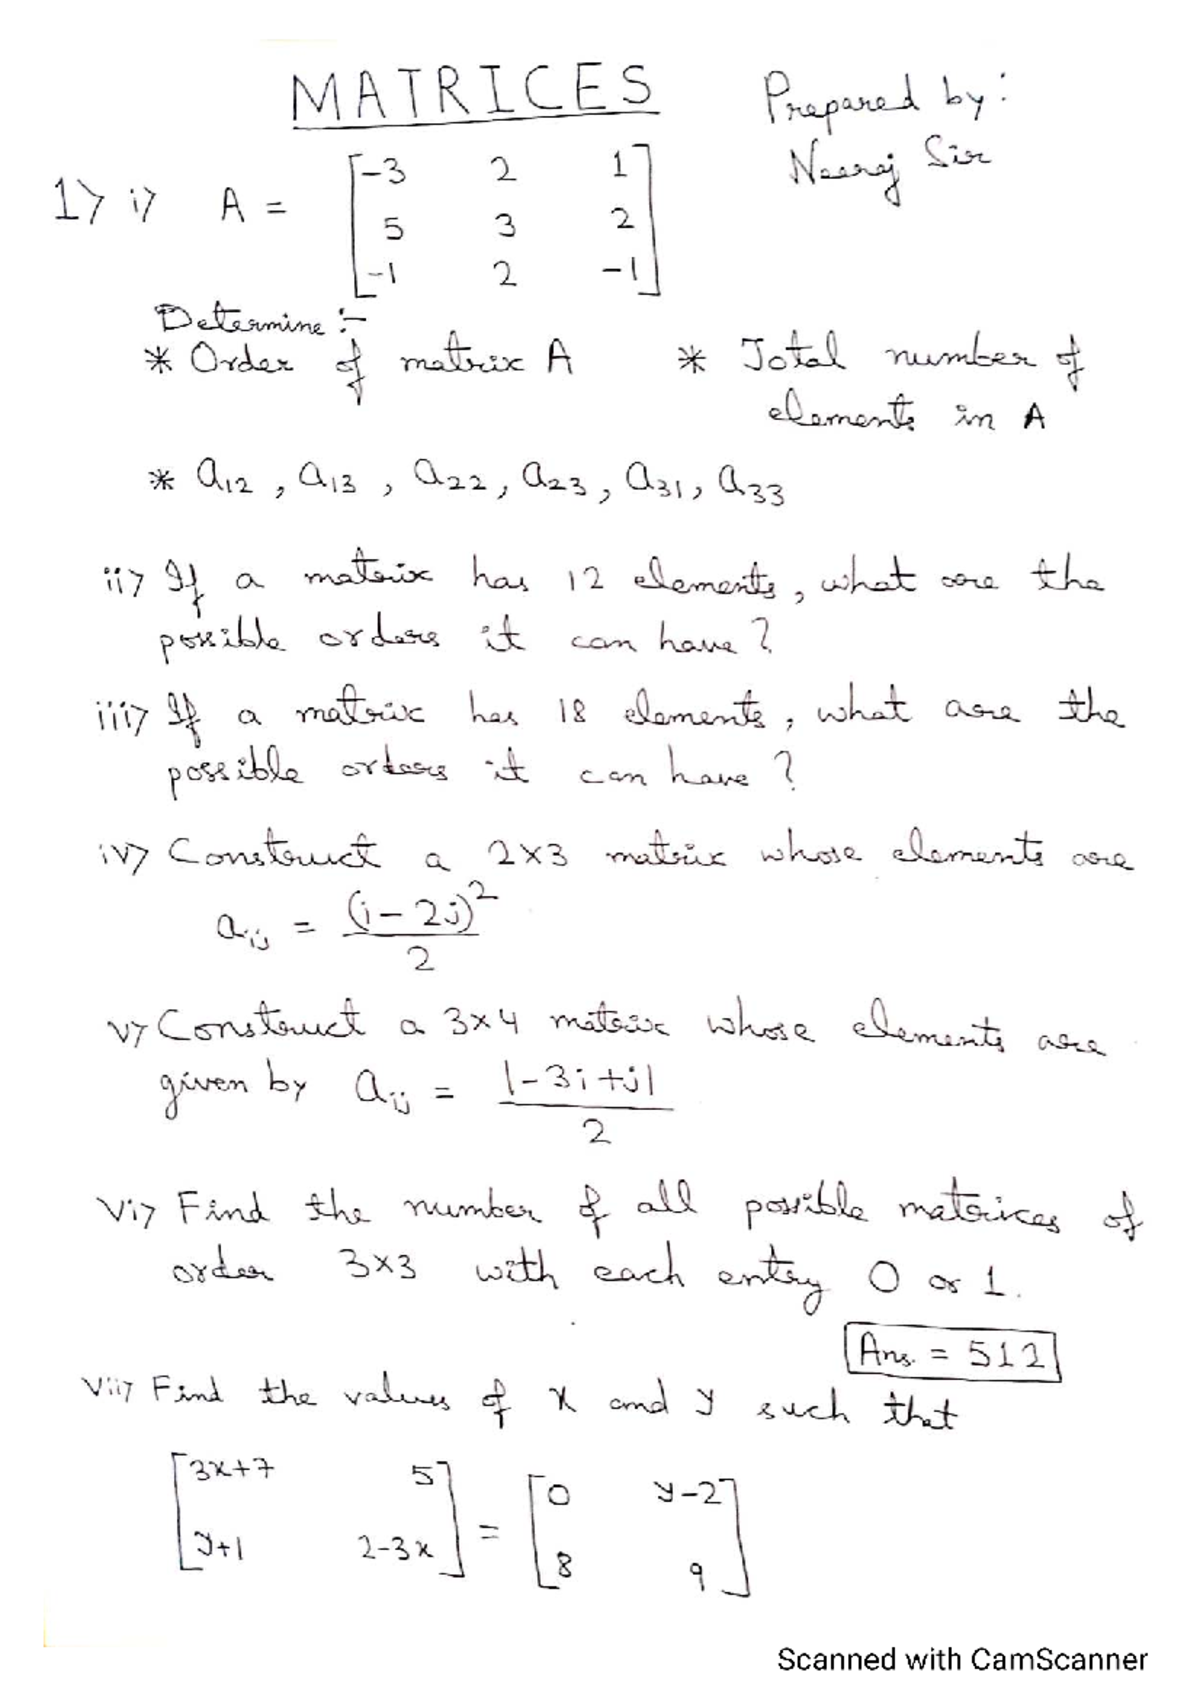 MATRICES
Prepared by:
Neeraj Sir
1> i> A = [-3 2 1
5 3 2
-1 2 -1]
Determine :-
* Order of matrix A * Total number of
elements in A
* a12, a13, a22, a23, a31, a33
ii> If a matrix has 12 elements, what are the
possible orders it can have?
iii> If a matrix has 18 elements, what are the
possible orders it can have?
iv> Construct a 2×3 matrix whose elements are
aij = (i-2j)²
2
v> Construct a 3×4 matrix whose elements are
given by aij = |-3i+j|
2
vi> Find the number of all possible matrices of
order 3×3 with each entry 0 or 1.
Ans. = 512
vii> Find the values of x and y such that
[3x+7 5] = [0 y-2]
[y+1 2-3x] [8 9]
Scanned with CamScanner